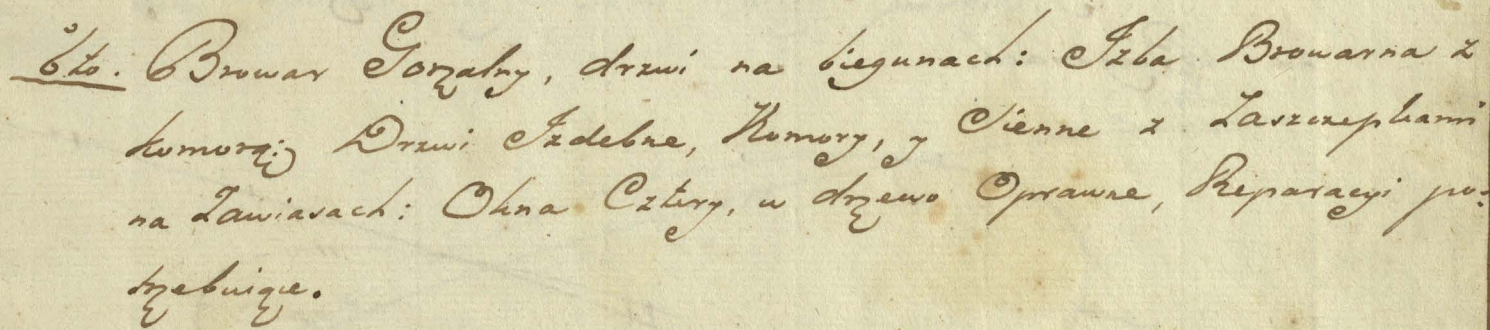 6to. Browar Gorzalny, drzwi na biegunach: Izba Browarna z
komorą: Drzwi Izdebne, Komory, y Sienne z Zaszczepkami
na Zawiasach: Okna Cztery, w drzewo Oprawne, Reparacyi po:
trzebuiące.